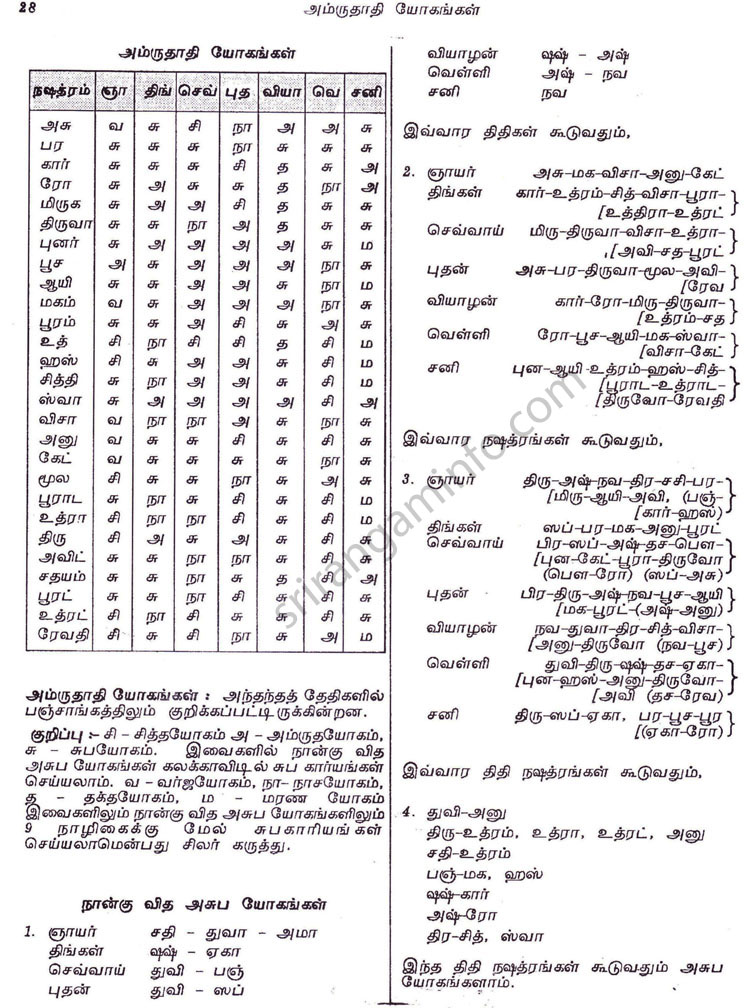 28
அம்ருதாதி யோகங்கள்
அம்ருதாதி யோகங்கள்
நஷத்ரம் ஞா திங் செவ் புத வியா வெ சனி
அசு வ சு சி நா அ அ சு
பர சு சு சு நா சு சு சு
கார் சு சு சு சி த சு அ
ரோ சு அ சு சு த நா அ
மிருக சு அ அ சி த சு சு
திருவா சு சு நா அ த சு சு
புனர் சு அ அ அ அ சு ம
பூச அ சு அ அ அ நா சு
ஆயி சு சு அ அ சு நா ம
மகம் வ சு அ அ அ நா சு
பூரம் சு சு அ சி சு அ சு
உத் சி நா சி சி த சி ம
ஹஸ் சி சு அ அ சு சி ம
சித்தி சு நா அ அ சு சி ம
ஸ்வா சு அ அ அ அ சி அ
விசா வ நா நா அ சு நா சு
அனு வ சு சு சி சி சு சு
கேட் வ சு சு சு சு நா சு
மூல சி சு சு நா சு அ சு
பூராட சு நா சு சி சு சி ம
உத்ரா சி நா நா சி சு சி ம
திரு சி அ சு அ சு சி சு
அவிட் சு சு நா நா சு சி சு
சதயம் சு சு நா சு த சி அ
பூரட் சு சு நா நா சு சி சு
உத்ரட் சி நா சி சு சு சி சு
ரேவதி சி சு சி நா சு அ ம
அம்ருதாதி யோகங்கள் : அந்தந்தத் தேதிகளில்
பஞ்சாங்கத்திலும் குறிக்கப்பட்டிருக்கின்றன.
குறிப்பு :- சி - சித்தயோகம் அ - அம்ருதயோகம்,
சு - சுபயோகம். இவைகளில் நான்கு வித
அசுப யோகங்கள் கலக்காவிடில் சுப கார்யங்கள்
செய்யலாம். வ - வர்ஜயோகம், நா- நாசயோகம்,
த - தக்தயோகம், ம - மரண யோகம்
இவைகளிலும் நான்கு வித அசுப யோகங்களிலும்
9 நாழிகைக்கு மேல் சுபகாரியங்கள்
செய்யலாமென்பது சிலர் கருத்து.
நான்கு வித அசுப யோகங்கள்
1. ஞாயர் சதி - துவா - அமா
திங்கள் ஷஷ் - ஏகா
செவ்வாய் துவி - பஞ்
புதன் துவி - ஸப்
வியாழன் ஷஷ் - அஷ்
வெள்ளி அஷ் - நவ
சனி நவ
இவ்வார திதிகள் கூடுவதும்,
2. ஞாயர் அசு-மக-விசா-அனு-கேட்
திங்கள் கார்-உத்ரம்-சித்-விசா-பூரா-
[உத்திரா-உத்ரட்
செவ்வாய் மிரு-திருவா-விசா-உத்ரா-
[அவி-சத-பூரட்
புதன் அசு-பர-திருவா-மூல-அவி-
[ரேவ
வியாழன் கார்-ரோ-மிரு-திருவா-
[உத்ரம்-சத
வெள்ளி ரோ-பூச-ஆயி-மக-ஸ்வா-
[விசா-கேட்
சனி புன-ஆயி-உத்ரம்-ஹஸ்-சித்-
[பூராட-உத்ராட-
[திருவோ-ரேவதி
இவ்வார நஷத்ரங்கள் கூடுவதும்,
3. ஞாயர் திரு-அஷ்-நவ-திர-சசி-பர-
[மிரு-ஆயி-அவி, (பஞ்-
[கார்-ஹஸ்)
திங்கள் ஸப்-பர-மக-அனு-பூரட்
செவ்வாய் பிர-ஸப்-அஷ்-தச-பௌ-
[புன-கேட்-பூரா-திருவோ
(பௌ-ரோ) (ஸப்-அசு)
புதன் பிர-திரு-அஷ்-நவ-பூச-ஆயி
[மக-பூரட்-(அஷ்-அனு)
வியாழன் நவ-துவா-திர-சித்-விசா-
[அனு-திருவோ (நவ-பூச)
வெள்ளி துவி-திரு-ஷஷ்-தச-ஏகா-
[புன-ஹஸ்-அனு-திருவோ-
[அவி (தச-ரேவ)
சனி திரு-ஸப்-ஏகா, பர-பூச-பூர
[(ஏகா-ரோ)
இவ்வார திதி நஷத்ரங்கள் கூடுவதும்,
4. துவி-அனு
திரு-உத்ரம், உத்ரா, உத்ரட், அனு
சதி-உத்ரம்
பஞ்-மக, ஹஸ்
ஷஷ்-கார்
அஷ்-ரோ
திர-சித், ஸ்வா
இந்த திதி நஷத்ரங்கள் கூடுவதும் அசுப
யோகங்களாம்.
srirangaminfo.com